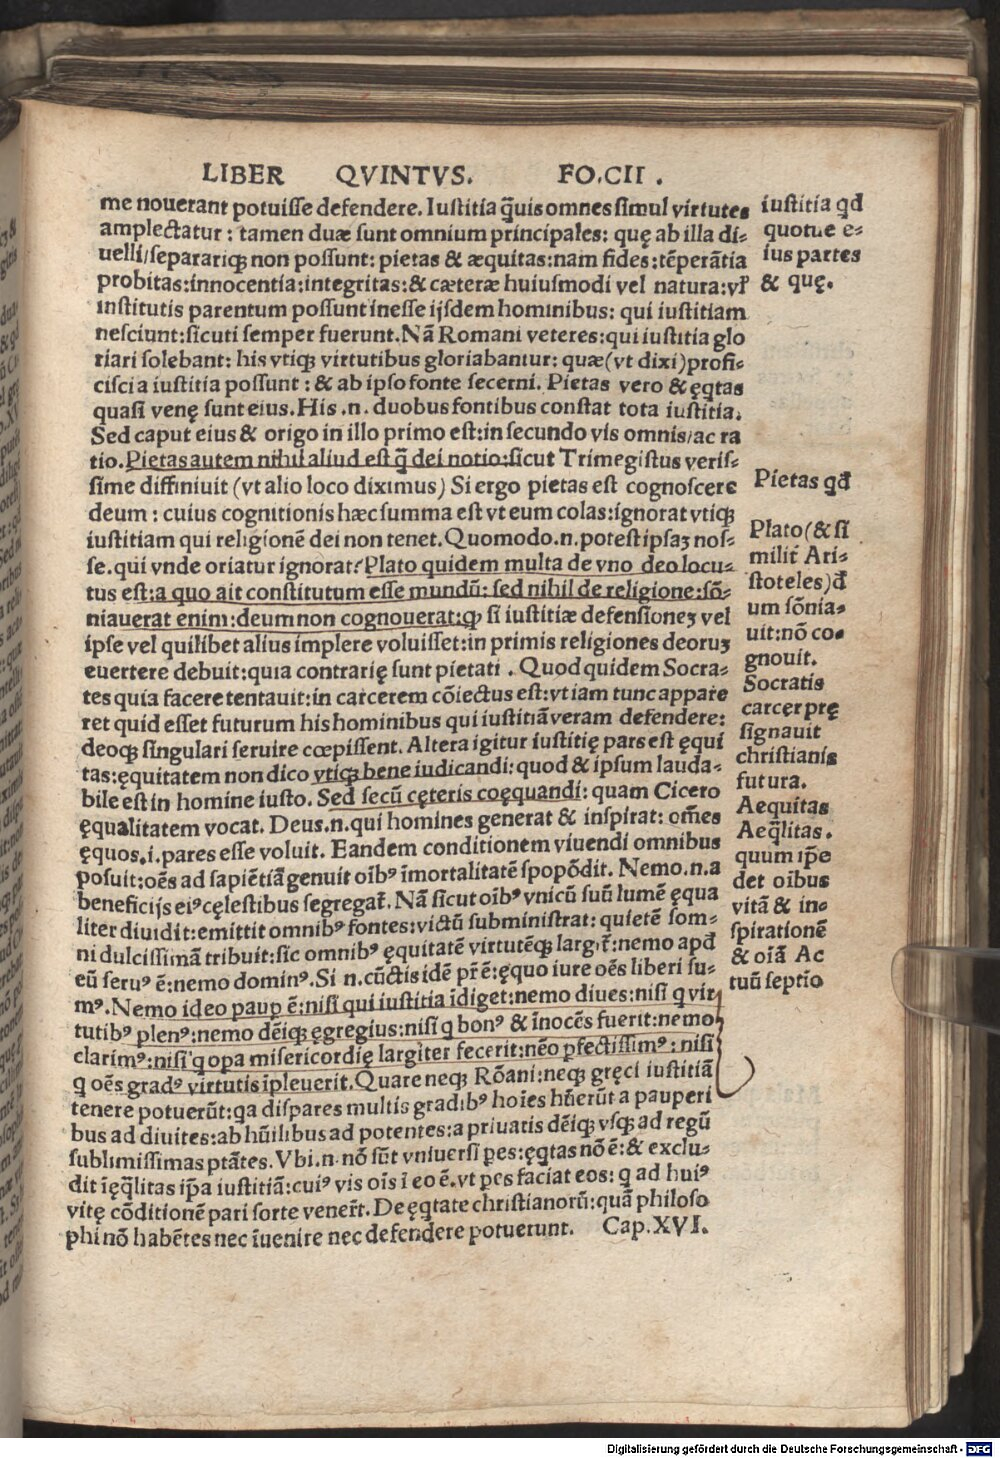 LIBER QVINTVS. FO.CII .
me nouerant potuiſſe defendere. Iuſtitia q̄uis omnes ſimul virtutes
amplectatur : tamen duæ ſunt omnium principales: quę ab illa di-
uelli/ſepararicꝫ non poſſunt: pietas & æquitas: nam fides: tēperātia
probitas: innocentia: integritas: & cæteræ huiuſmodi vel natura: vl̄
inſtitutis parentum poſſunt ineſſe ijſdem hominibus: qui iuſtitiam
neſciunt: ſicuti ſemper fuerunt. Nā Romani veteres: qui iuſtitia glo
riari ſolebant: his vtiqꝫ virtutibus gloriabantur: quæ (vt dixi) profi-
ciſci a iuſtitia poſſunt : & ab ipſo fonte ſecerni. Pietas vero & ęqtas
quaſi venę ſunt eius. His .n. duobus fontibus conſtat tota iuſtitia.
Sed caput eius & origo in illo primo eſt: in ſecundo vis omnis/ac ra
tio. Pietas autem nihil aliud eſt q̄ dei notio: ſicut Trimegiſtus veriſ-
ſime diffiniuit (vt alio loco diximus) Si ergo pietas eſt cognoſcere
deum : cuius cognitionis hæc ſumma eſt vt eum colas: ignorat vtiqꝫ
iuſtitiam qui religionē dei non tenet. Quomodo .n. poteſt ipſaꝫ noſ-
ſe. qui vnde oriatur ignorat? Plato quidem multa de vno deo locu-
tus eſt: a quo ait conſtitutum eſſe mundū: ſed nihil de religione: ſō-
niauerat enim: deum non cognouerat: qꝫ ſi iuſtitiæ defenſioneꝫ vel
ipſe vel quilibet alius implere voluiſſet: in primis religiones deoruꝫ
euertere debuit: quia contrarię ſunt pietati . Quod quidem Socra-
tes quia facere tentauit: in carcerem cōiectus eſt: vt iam tunc appare
ret quid eſſet futurum his hominibus qui iuſtitiā veram defendere:
deoqꝫ ſingulari ſeruire cœpiſſent. Altera igitur iuſtitię pars eſt ęqui
tas: ęquitatem non dico vtiqꝫ bene iudicandi: quod & ipſum lauda-
bile eſt in homine iuſto. Sed ſecū cęteris coęquandi: quam Cicero
ęqualitatem vocat. Deus .n. qui homines generat & inſpirat: om̄es
ęquos .i. pares eſſe voluit. Eandem conditionem viuendi omnibus
poſuit: oēs ad ſapiētiā genuit oībꝰ īmortalitatē ſpopōdit. Nemo .n. a
beneficijs eiꝰ cęleſtibus ſegregat̄. Nā ſicut oībꝰ vnicū ſuū lumē ęqua
liter diuidit: emittit omnibꝰ fontes: victū ſubminiſtrat: quietē ſom-
ni dulciſſimā tribuit: ſic omnibꝰ ęquitatē virtutēqꝫ largit̄: nemo apd̄
eū ſeruꝰ ē: nemo dominꝰ. Si n. cūctis idē pr̄ ē: ęquo iure oēs liberi ſu-
mꝰ. Nemo ideo paup ē: niſi qui iuſtitia idiget: nemo diues: niſi q vir
tutibꝰ plenꝰ: nemo dēiqꝫ ęgregius: niſi q bonꝰ & īnocēs fuerit: nemo
clariſmꝰ: niſi q opa miſericordię largiter fecerit: nēo pfectiſſimꝰ: niſi
q oēs gradꝰ virtutis īpleuerit. Quare neqꝫ Rōani: neqꝫ gręci iuſtitiā
tenere potuerūt: qa diſpares multis gradibꝰ hoīes hūerūt a pauperi
bus ad diuites: ab hūilibus ad potentes: a priuatis dēiqꝫ vſqꝫ ad regū
ſublimiſſimas ptātes. Vbi .n. nō ſūt vniuerſi pes: ęqtas nō ē: & exclu-
dit īęq̄litas ip̄a iuſtitiā: cuiꝰ vis oīs ī eo ē. vt pes faciat eos: q ad huiꝰ
vitę cōditionē pari ſorte venert̄. De ęqtate chriſtianorū: quā philoſo
phi nō habētes nec īuenire nec defendere potuerunt. Cap.XVI.
iuſtitia qd
quotue e-
ius partes
& quę.
Pietas qd̄
Plato (& ſi
milit̄ Ari-
ſtoteles) d̄
um ſōnia-
uit: nō co-
gnouit.
Socratis
carcer prę
ſignauit
chriſtianis
futura.
Aequitas
Aeq̄litas.
quum ip̄e
det oībus
vitā & in-
ſpirationē
& oīā Ac
tuū ſeptio
Digitalisierung gefördert durch die Deutsche Forschungsgemeinschaft - DFG